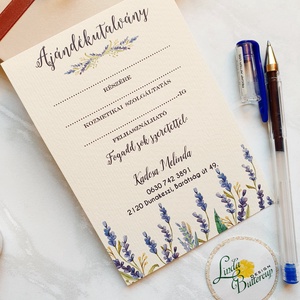 Ajándékutalvány
RÉSZÉRE
KOZMETIKAI SZOLGÁLTATÁS
-IG
FELHASZNÁLHATÓ
Fogadd sok szeretettel
Kadosa Melinda
0630 742 3891
2120 Dunakeszi, Barátság út 49.
Livily
Buttercup
DESIGN